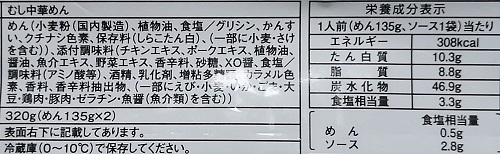 むし中華めん
めん(小麦粉(国内製造)、植物油、食塩/グリシン、かんすい、クチナシ色素、保存料(しらこたん白)、(一部に小麦・さけを含む))、添付調味料(チキンエキス、ポークエキス、植物油、醤油、魚介エキス、野菜エキス、香辛料、砂糖、XO醤、食塩/調味料(アミノ酸等)、酒精、乳化剤、増粘多糖類、カラメル色素、香料、香辛料抽出物、(一部にえび・小麦・いか・ごま・大豆・鶏肉・豚肉・ゼラチン・魚醤(魚介類)を含む))
320g(めん135g×2)
表面右下に記載してあります。
冷蔵庫(0~10℃)で保存してください。
栄養成分表示
1人前(めん135g、ソース1袋)当たり
エネルギー 308kcal
たん白質 10.3g
脂質 8.8g
炭水化物 46.9g
食塩相当量 3.3g
食塩相当量
めん 0.5g
ソース 2.8g